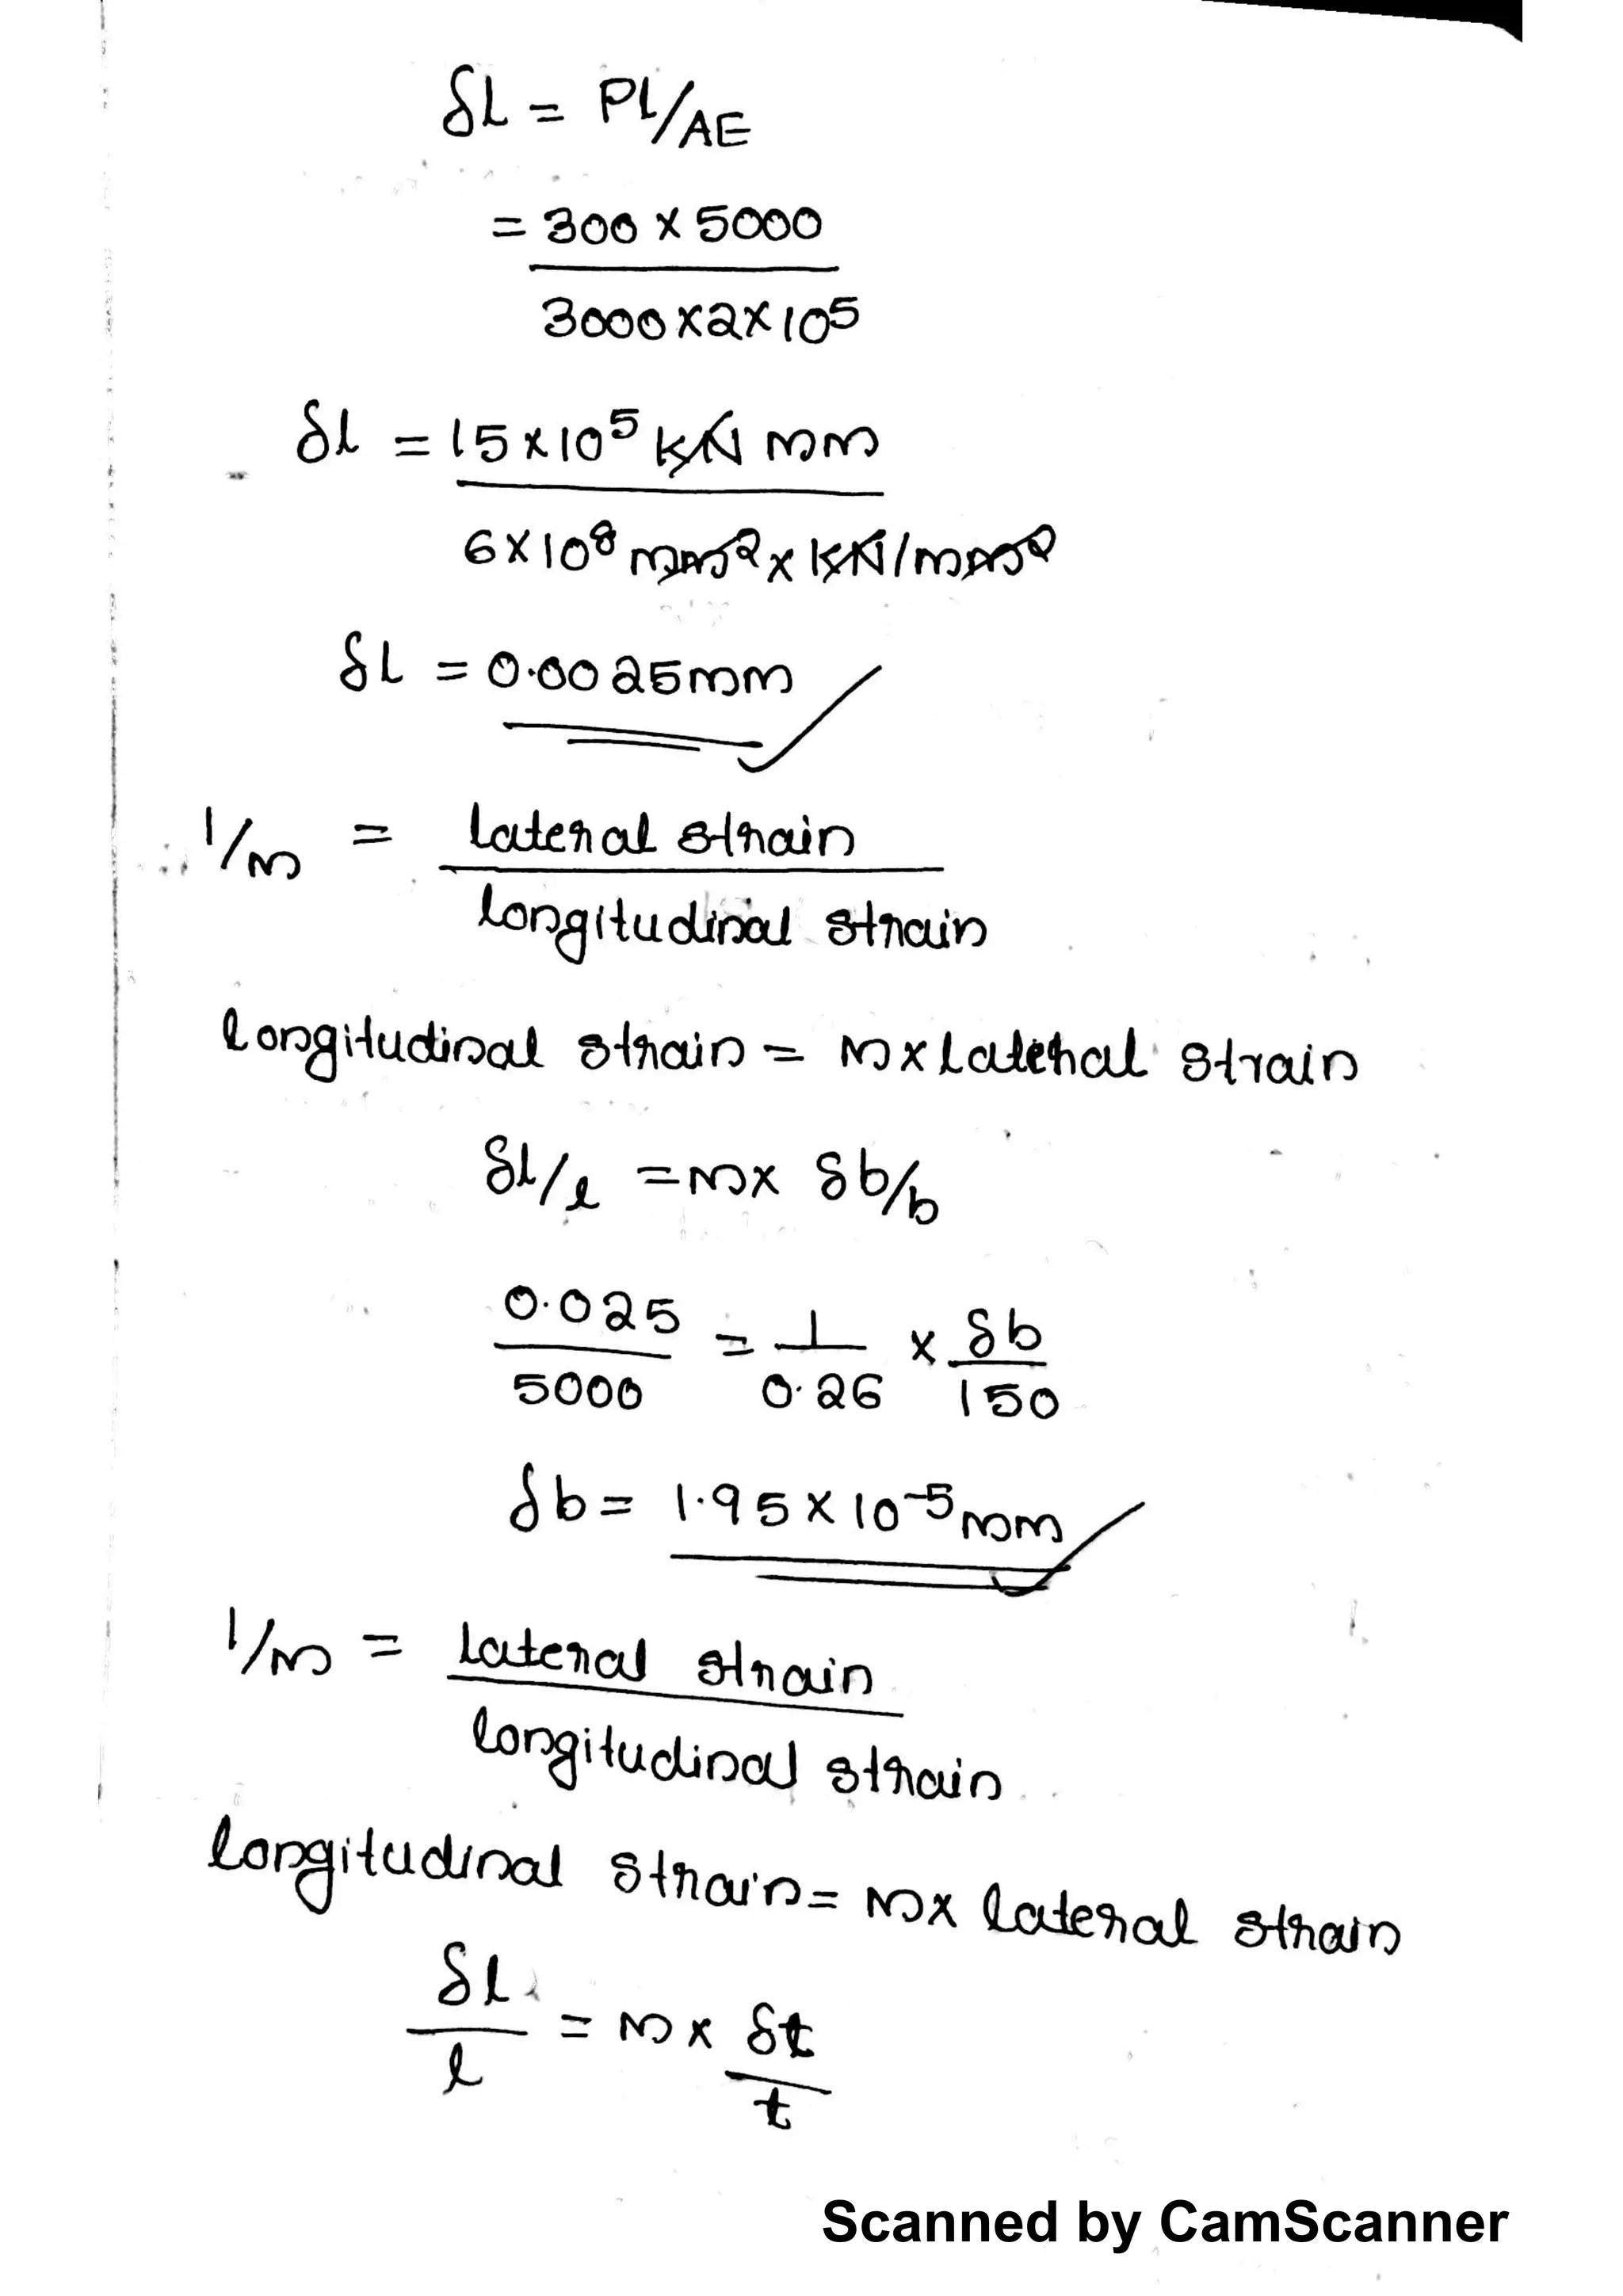 δL = Pl/AE
= 300 × 5000
3000×2×10⁵
δl = 15×10⁵ kN mm
6×10⁸ mm² × kN/mm²
δL = 0.0025mm
1/m = lateral strain
longitudinal strain
longitudinal strain = m×lateral strain
δl/l = m× δb/b
0.025 = 1 × δb
5000 0.26 150
δb = 1.95×10⁻⁵mm
1/m = lateral strain
longitudinal strain
longitudinal strain = m× lateral strain
δl = m× δt
l t
Scanned by CamScanner